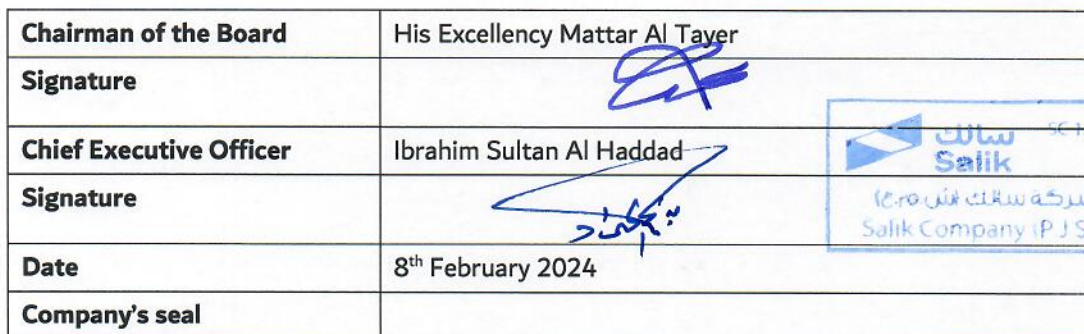 Chairman of the Board His Excellency Mattar Al Tayer
Signature
Chief Executive Officer Ibrahim Sultan Al Haddad
Signature
Date 8th February 2024
Company's seal
سالك
Salik
شركة سالك
Salik Company (P J S